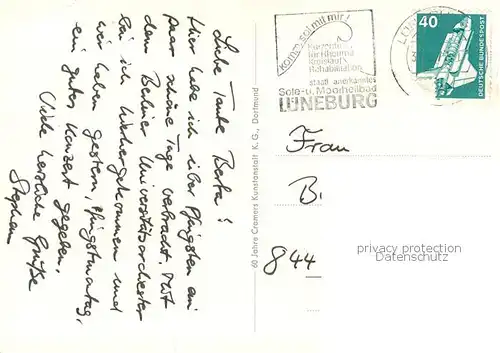 Liebe Tante Berta!
Hier habe ich über Pfingsten ein
paar schöne Tage verbracht. Mit
dem Berliner Universitätsorchester
bin ich hierhergekommen und
wir haben gestern, Pfingstmontag,
ein gutes Konzert gegeben.
Viele herzliche Grüße
Stephan
60 Jahre Cramers Kunstanstalt K. G., Dortmund
komm, sol mit mir!
Kurzentr.
für Rheuma
Kreislauf
Rehabilitation
staatl. anerkanntes
Sole- u. Moorheilbad
LÜNEBURG
40
DEUTSCHE BUNDESPOST
Frau
B.
844
privacy protection
Datenschutz